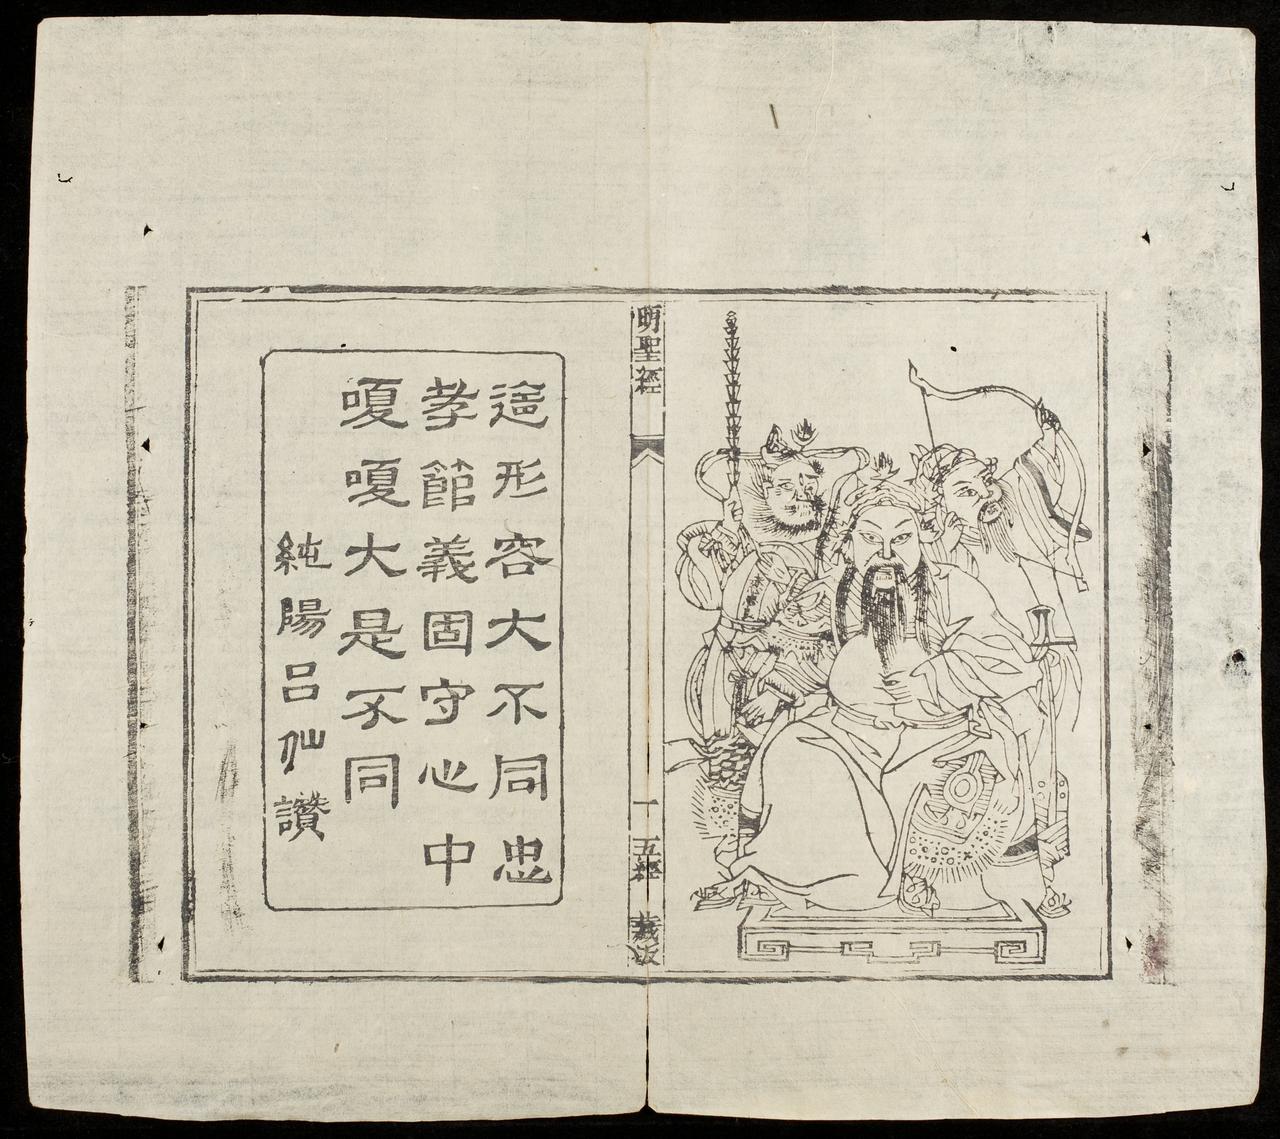 這形容大不同忠
孝節義固守心中
嗄嗄大是不同
純陽呂仙讚
明聖經
一
五經
藏板